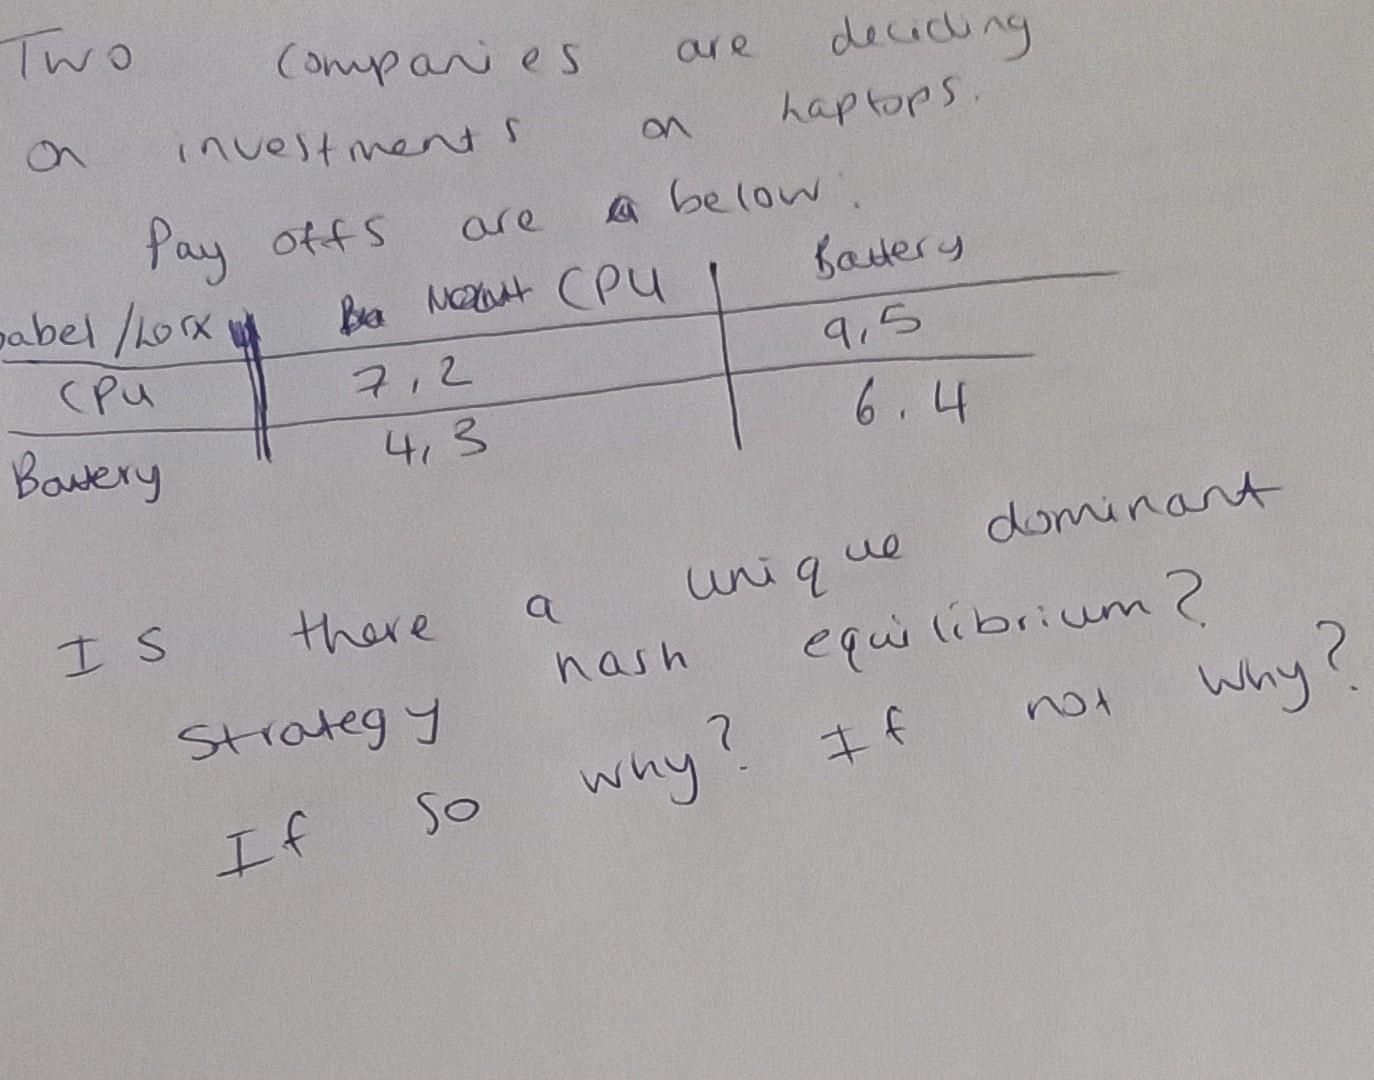 Two companies are deciding
on investments on haptops.
Pay offs are below:
abel / Lorx CPU Battery
CPU 7,2 9,5
Battery 4,3 6.4
Is there a unique dominant
strategy nash equilibrium?
If so why? If not why?